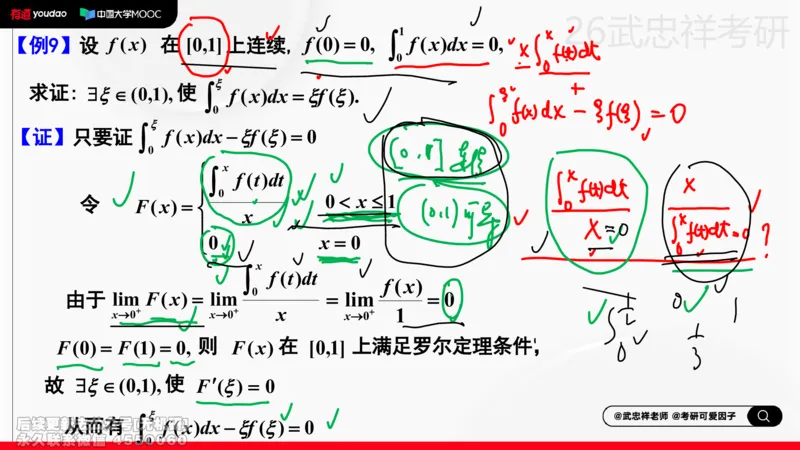 有道 youdao 中国大学MOOC
26武忠祥考研
【例9】设 f(x) 在 [0,1] 上连续, f(0) = 0, ∫₀¹ f(x)dx = 0,
x∫₀ˣ f(t)dt
求证: ∃ξ∈(0,1), 使 ∫₀^ξ f(x)dx = ξf(ξ).
∫₀^ξ f(x)dx − ξf(ξ) = 0
【证】只要证 ∫₀^ξ f(x)dx − ξf(ξ) = 0
[0,1] 连续
令 F(x) = { ∫₀ˣ f(t)dt / x, 0 < x ≤ 1
0, x = 0
(0,1) 可导
∫₀ˣ f(t)dt / x = 0
x / ∫₀ˣ f(t)dt = 0 ?
由于 lim_{x→0⁺} F(x) = lim_{x→0⁺} ∫₀ˣ f(t)dt / x = lim_{x→0⁺} f(x) / 1 = 0
0 1
1/3
F(0) = F(1) = 0, 则 F(x) 在 [0,1] 上满足罗尔定理条件,
故 ∃ξ∈(0,1), 使 F′(ξ) = 0
从而有 ∫₀^ξ f(x)dx − ξf(ξ) = 0
@武忠祥老师 @考研可爱因子
永久联系微信 4550060